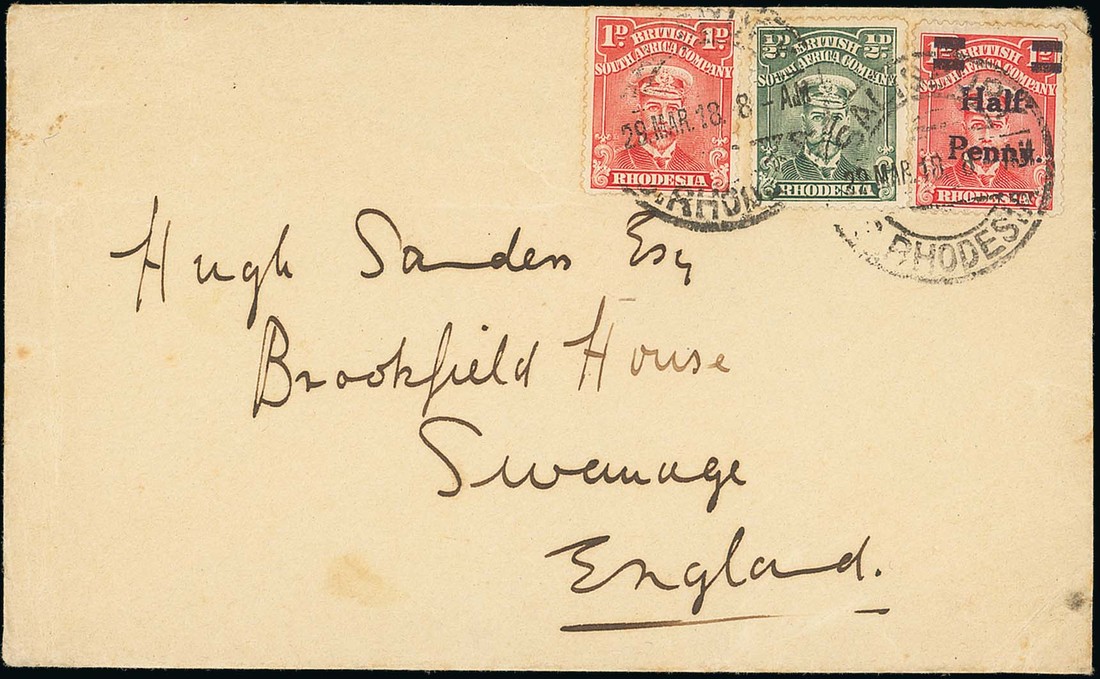 1D 1D
BRITISH
SOUTH AFRICA COMPANY
RHODESIA
½D ½D
BRITISH
SOUTH AFRICA COMPANY
RHODESIA
BRITISH
SOUTH AFRICA COMPANY
Half-
Penny.
RHODESIA
29 MAR. 18. 8 - AM
RHODESIA
Hugh Sanders Esq
Brookfield House
Swanage
England.